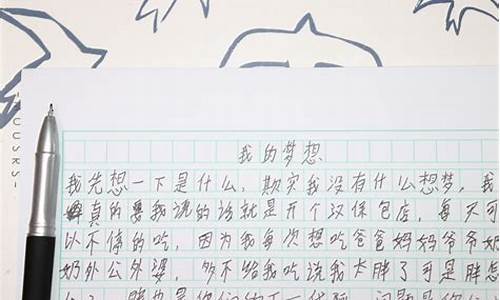 我的梦想
我先想一下是什么,欺实我没有什么想梦,我
真的要我说的话就是开个汉保包店,每天可
以不停的吃,因为我每次想吃爸爸妈妈爷爷奶
奶外公外婆,多不给我吃说我卡胖了可是胖怎